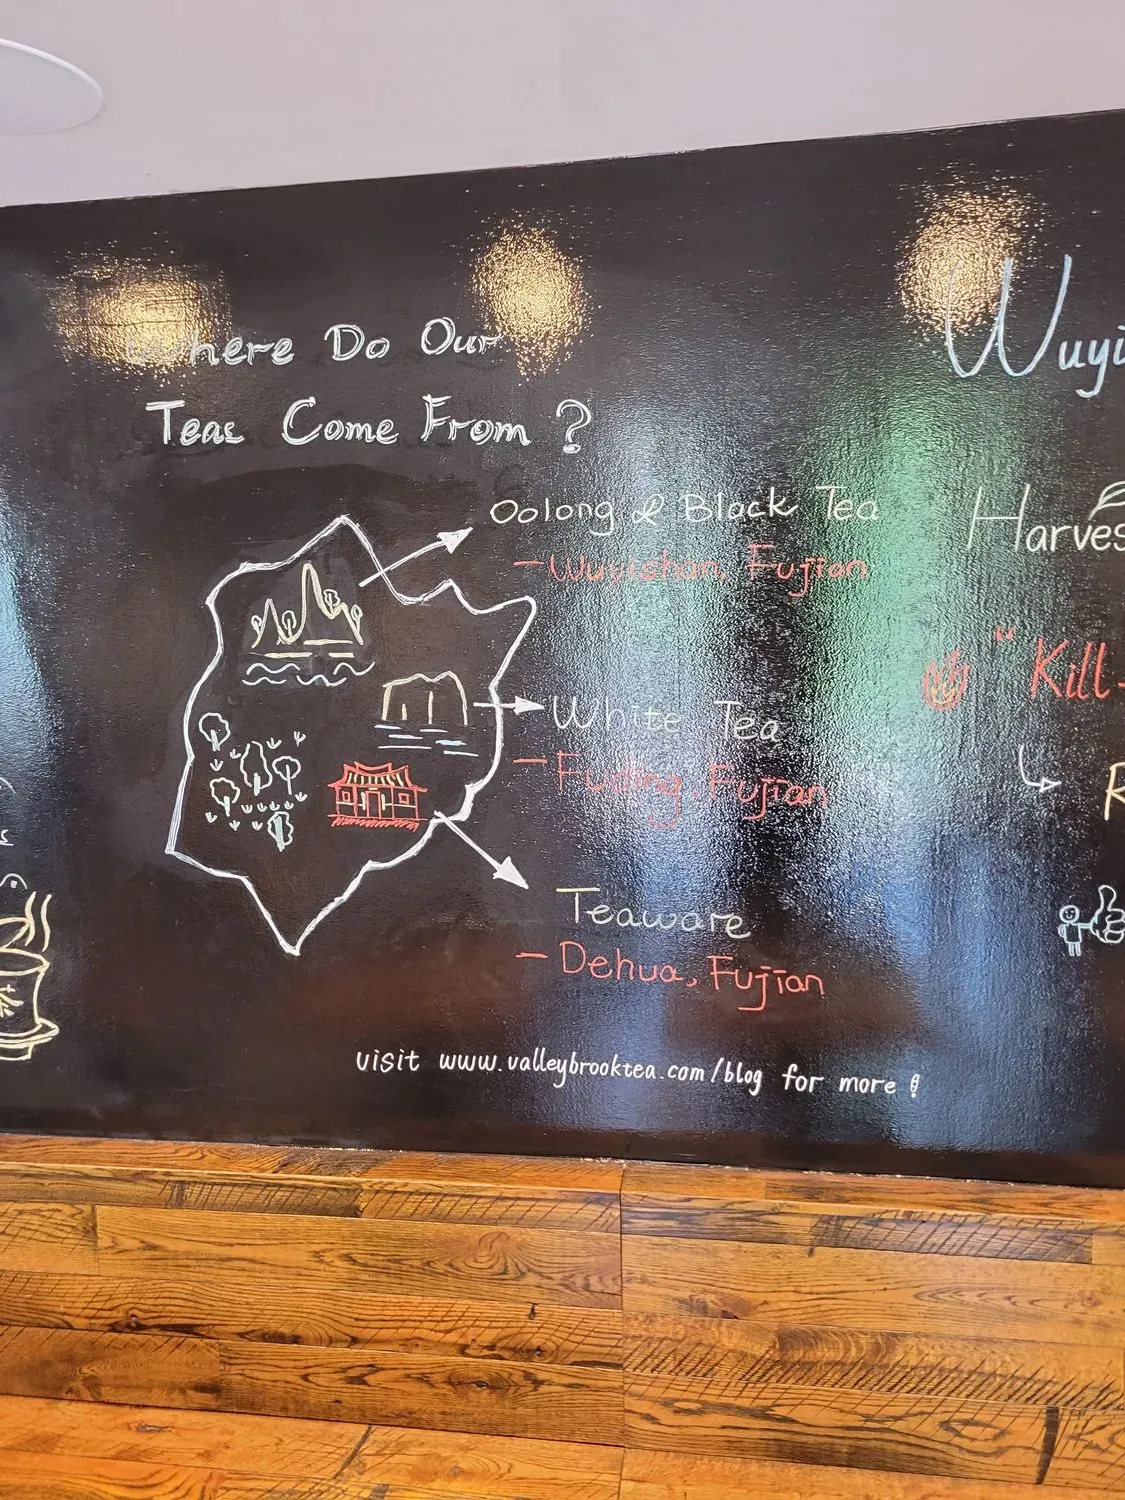 Where Do Our
Teas Come From ?
Oolong & Black Tea
- Wuyishan, Fujian
White Tea
- Fuding, Fujian
Teaware
- Dehua, Fujian
visit www.valleybrooktea.com/blog for more !
Wuyi
Harves
"Kill-
R